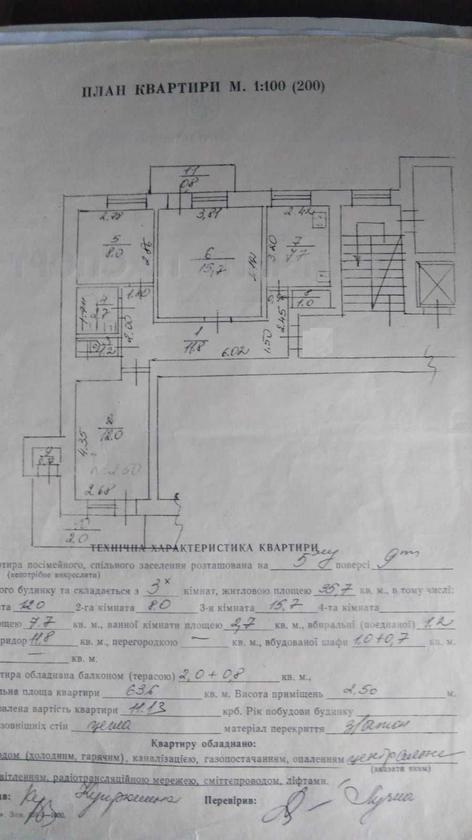 ПЛАН КВАРТИРИ М. 1:100 (200)
11
0.8
2.78
3.81
2.42
5
8.0
2.86
6
15.7
3.20
7
7.7
1.0
2.45
1.50
2.00
1
11.8
6.02
1.2
2
12.0
4.35
h=2.50
2.68
9
0.7
10
2.0
ТЕХНІЧНА ХАРАКТЕРИСТИКА КВАРТИРИ
ртира посімейного, спільного заселення розташована на 5му поверсі
(непотрібне викреслити)
ого будинку та складається з 3х кімнат, житловою площею 35,7 кв. м., в тому числі:
ата 12.0 2-га кімната 8.0 3-я кімната 15,7 4-та кімната
ощею 7.7 кв. м., ванної кімнати площею 2,7 кв. м., вбиральні (поєднаної) 1,2
ридор 11,8 кв. м., перегородкою — кв. м., вбудованої шафи 1.0+0,7 кв. м.
— кв. м.
ртира обладнана балконом (терасою) 2,0+0,8 кв. м.,
льна площа квартири 63.6 кв. м. Висота приміщень 2.50 м.
овлена вартість квартири 11.13 крб. Рік побудови будинку
зовнішніх стін цегла матеріал перекриття
Квартиру обладнано:
водом (холодним, гарячим), каналізацією, газопостачанням, опаленням
(вказати яким)
вітленням, радіотрансляційною мережею, сміттєпроводом, ліфтами.
Перевірив: